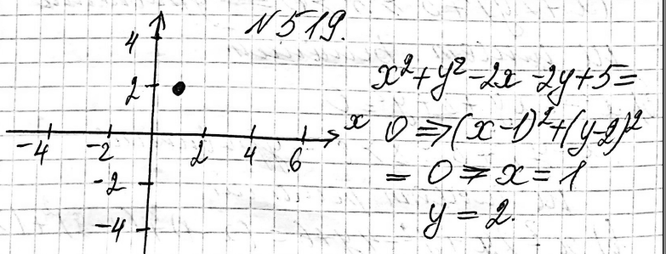 N519.
4
2
x
-4 -2 2 4 6
-2
-4
x²+y²-2x-2y+5=
0 ⇒(x-1)²+(y-2)²
= 0 ⇒ x = 1
y = 2.